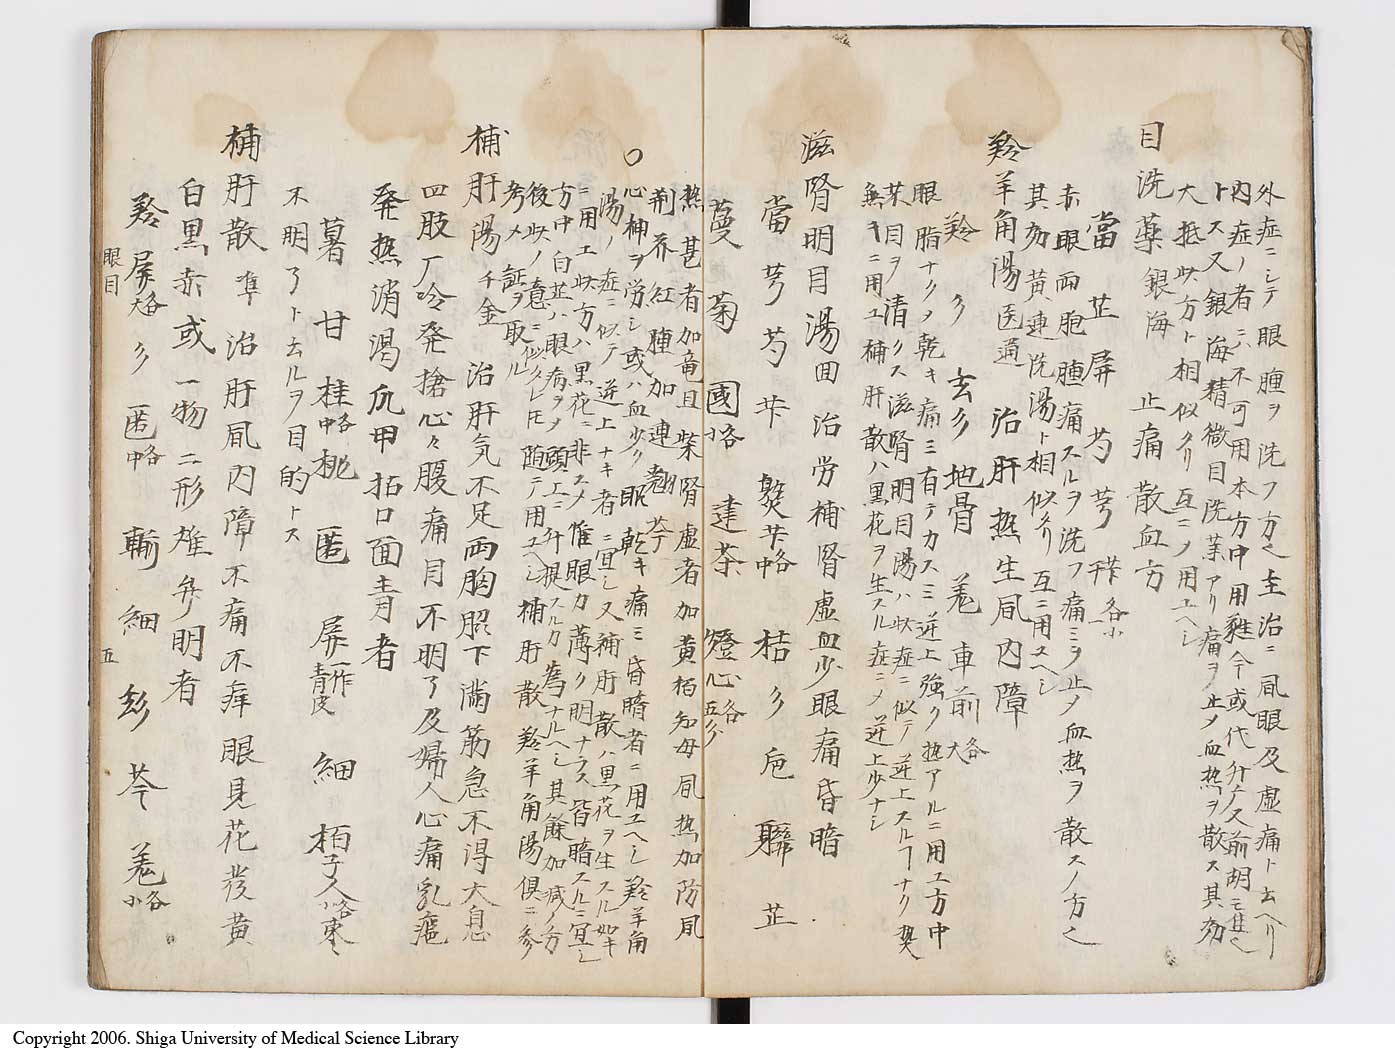 外症ニシテ眼腫ヲ洗フ方也主治ニ風眼及虚痛ト云ヘリ
内症ノ者ニハ不可用本方中用
トス又銀海精微目洗薬アリ痛ヲ止メ血熱ヲ散ス其効
大抵此方ト相似タリ互ニ用エヘシ
目洗薬 銀海 止痛散血方
當 芷 屏 芍 芎 各小
赤眼両胞腫痛スルヲ洗フ痛ミヲ止メ血熱ヲ散スノ方也
其効黄連洗湯ト相似タリ互ニ用ユヘシ
羚羊角湯 医通 治肝熱生風内障
羚 玄 地骨 羗 車前 大各
眼脂ナクメ乾キ痛ミ有テカスミ逆上強ク熱アルニ用エ方中
菊目ヲ清クス滋腎明目湯ハ此症ニ似テ逆上スルナク
無キニ用ユ補肝散ハ黒花ヲ生スル症ニメ逆上少ナシ
滋腎明目湯 回 治労補腎虚血少眼痛昏暗
當 芎 芍 芐 芐 中各 桔 聯 芷
蔓 菊 國 小各 茶 燈心 五分
熱甚者加竜且柴腎虚者加黄栢知母風熱加防風
荆芥紅腫加連翹芩
○心神ヲ労シ或ハ血少ク眼乾キ痛ミ昏暗者ニ用エヘシ羚羊角
湯ノ症ニ似テ逆上ナキ者ニ宜シ又補肝散ハ黒花ヲ生スル如キ
ニ用エ此方ハ黒花ニ非スメ惟眼力薄ク明ナラス昏暗スルニ宜シ
方中白芷ハ眼病ヲメ頭上ニ升提スル力為ナルヘシ其餘加減ノ方
後此ノ意ニ似タレ𪜈随テ用ユヘシ補肝散羚羊角湯倶ニ参
考メ証ヲ取ル
補肝湯 千金 治肝気不足両胸腹下満筋急不得大息
四肢厂冷発搶心々腹痛目不明了及婦人心痛乳癰
発熱消渇爪甲拓口面青者
暑 甘 桂 中各 桃 匿 屏 一作青皮 細 栢子人 小各 枣
不明了ト云ルヲ目的トス
補肝散 準 治肝風内障不痛不痒眼見花發黄
白黒赤或一物二形難弁明者
羚 屏 大各 匿 中各 細 芩 羗 小各
眼目
五
Copyright 2006. Shiga University of Medical Science Library